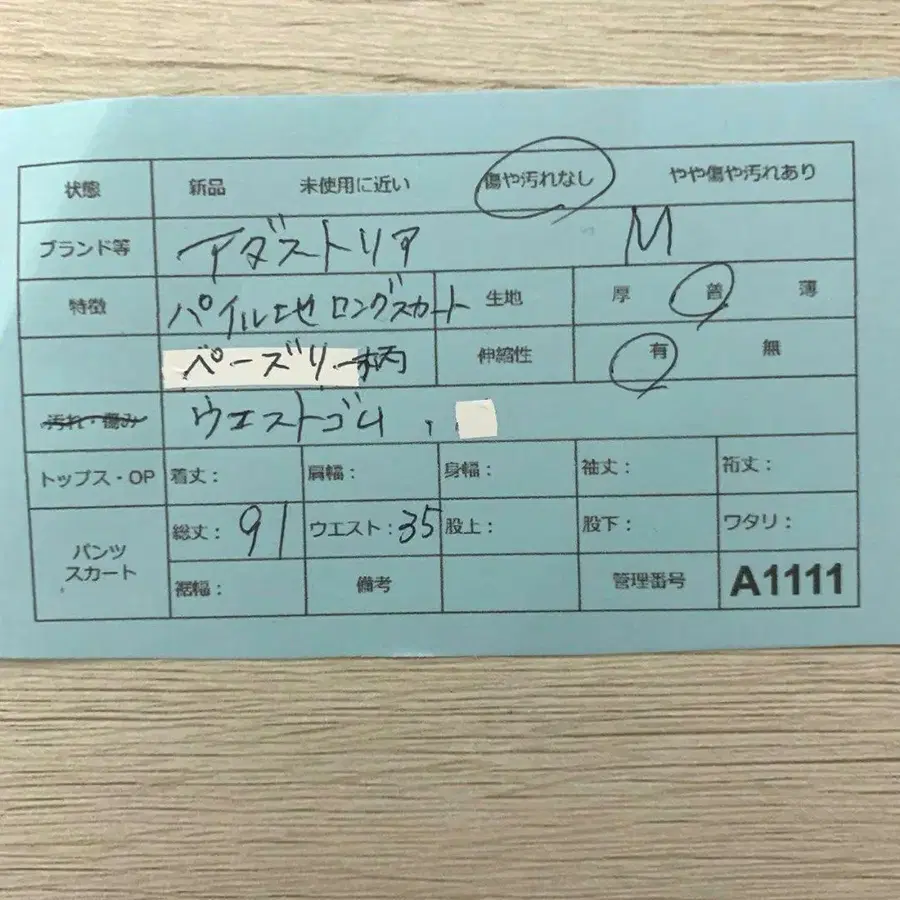 状態 新品 未使用に近い 傷や汚れなし やや傷や汚れあり
ブランド等 アダストリア M
特徴 パイル地 ロングスカート 生地 厚 普 薄
ペーズリー柄 伸縮性 有 無
汚れ・傷み ウエストゴム、
トップス・OP 着丈: 肩幅: 身幅: 袖丈: 裄丈:
パンツ スカート 総丈: 91 ウエスト: 35 股上: 股下: ワタリ:
裾幅: 備考 管理番号 A1111